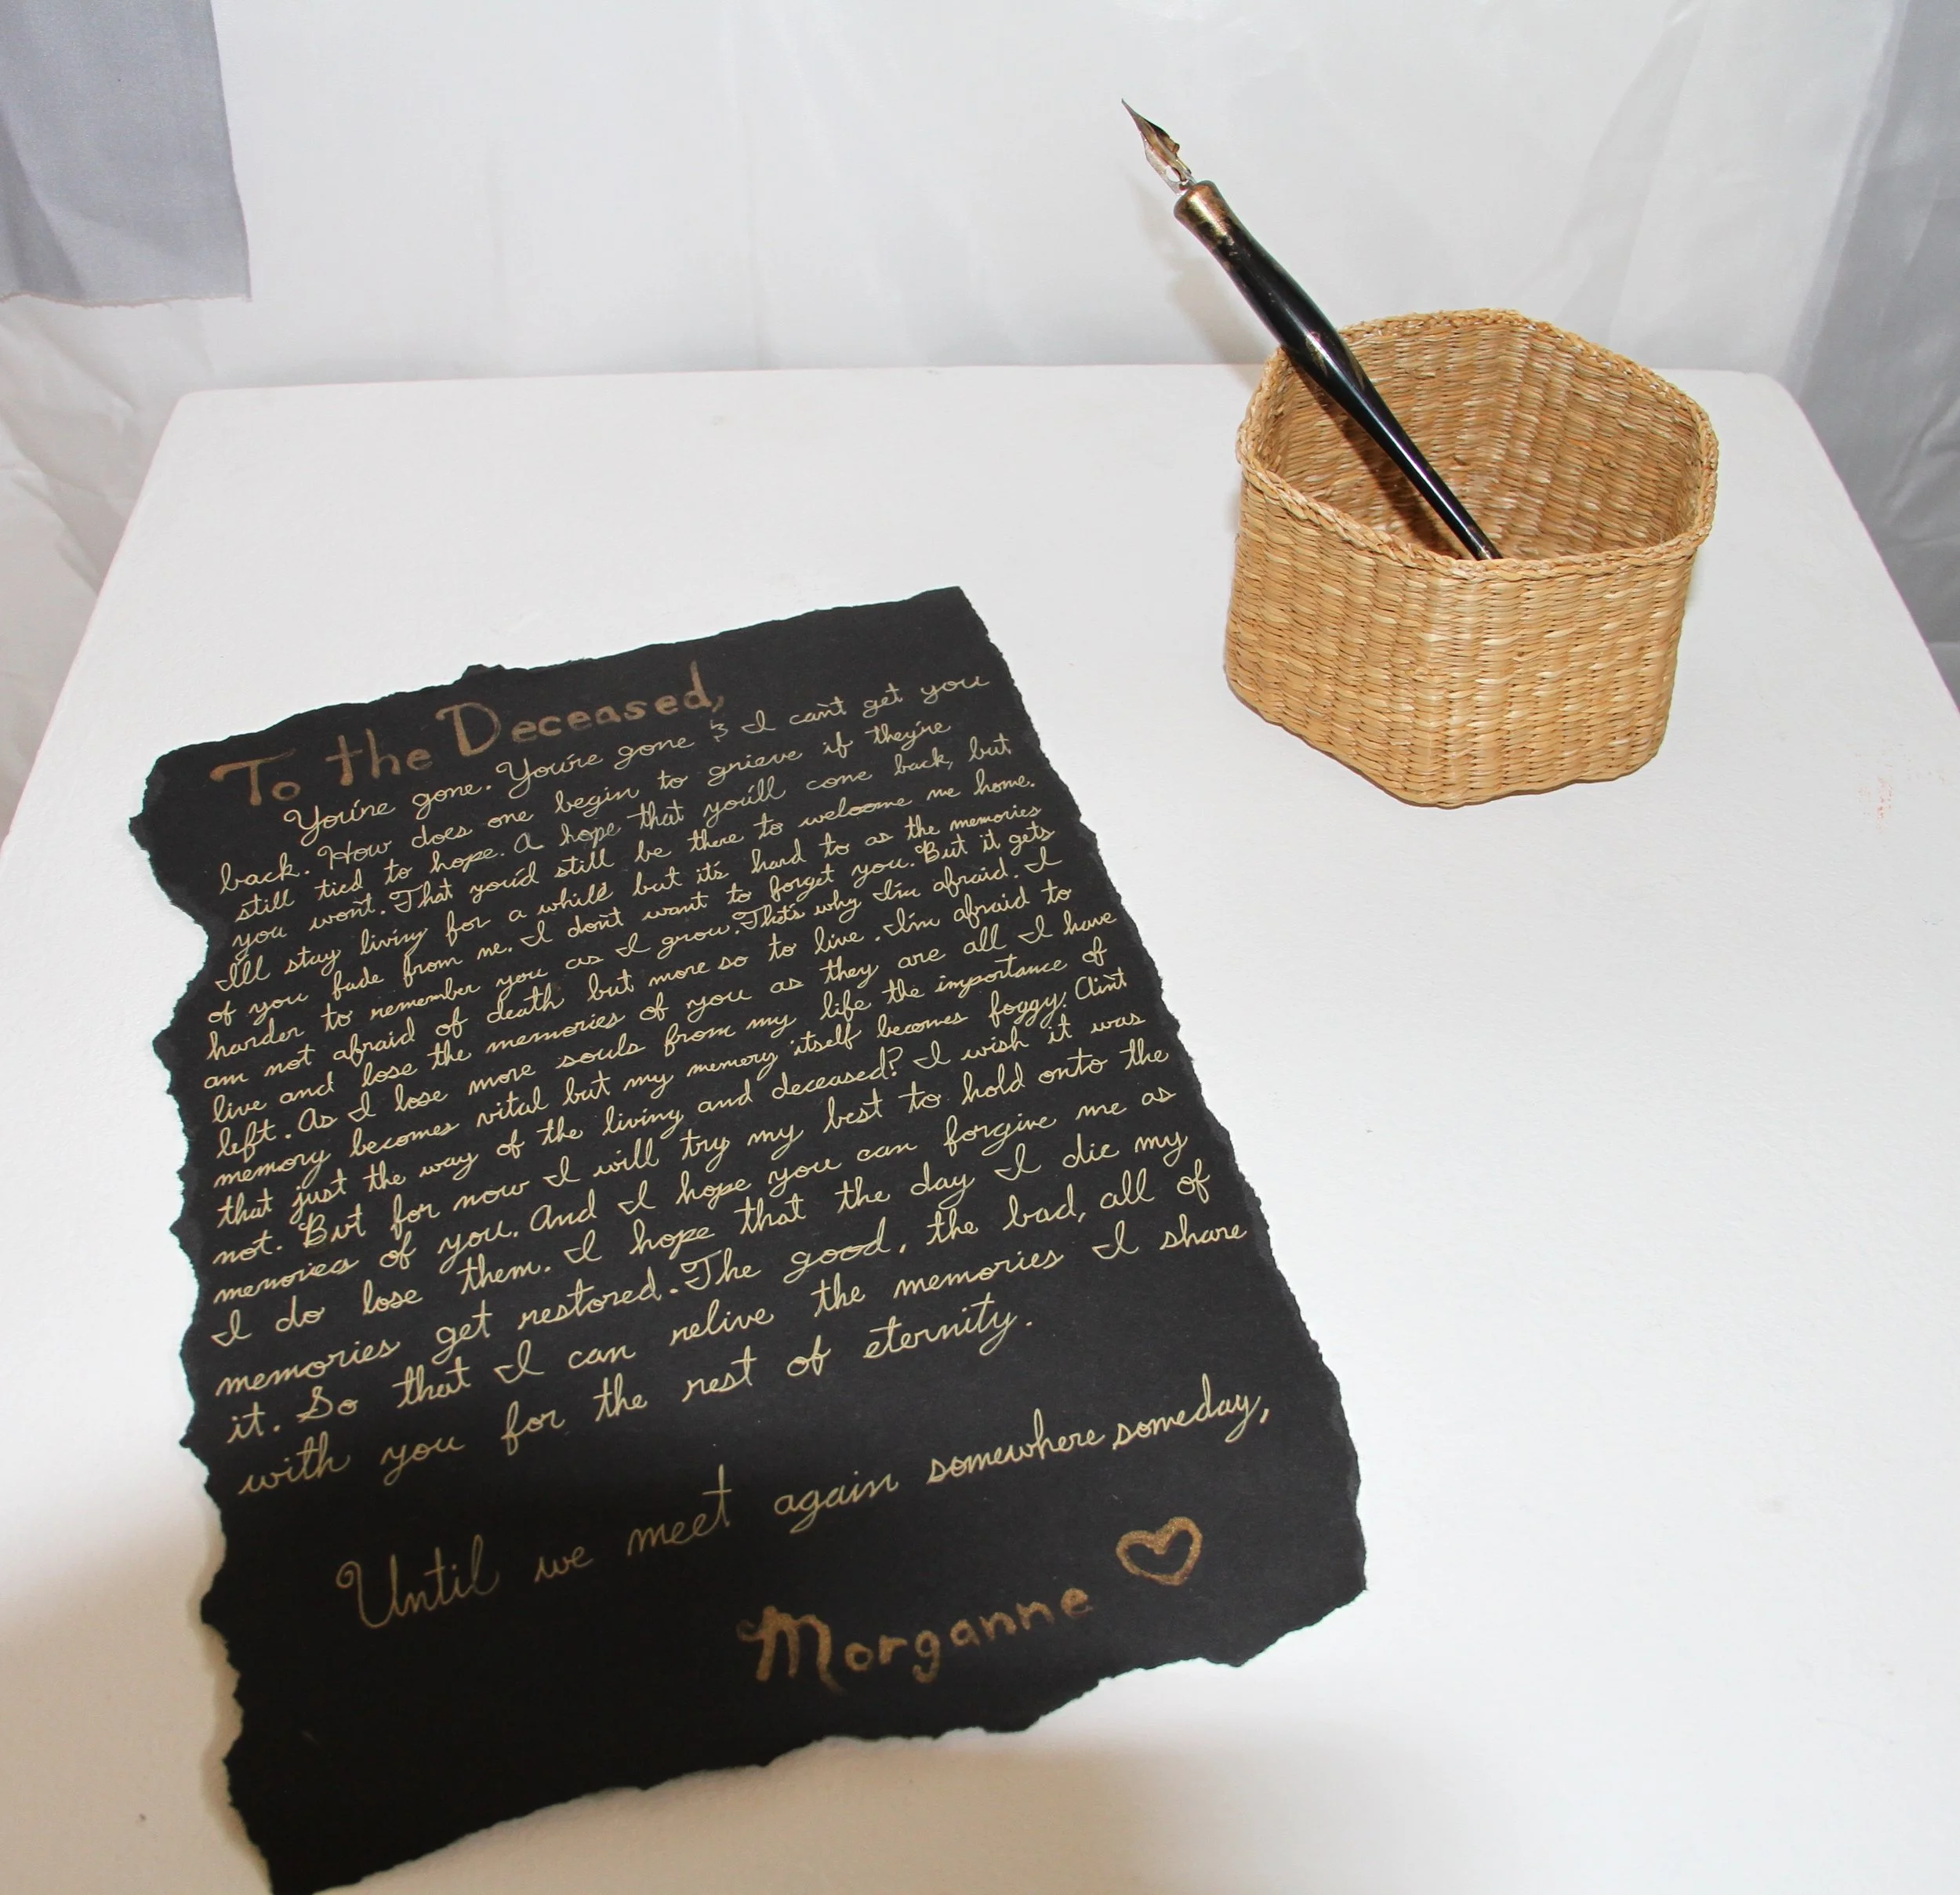 To the Deceased,
You're gone. You're gone & I can't get you
back. How does one begin to grieve if they're
still tied to hope. A hope that you'll come back, but
you won't. That you'd still be there to welcome me home.
I'll stay living for a while but it's hard to as the memories
of you fade from me. I don't want to forget you. But it gets
harder to remember you as I grow. That's why I'm afraid. I
am not afraid of death but more so to live. I'm afraid to
live and lose the memories of you as they are all I have
left. As I lose more souls from my life the importance of
memory becomes vital but my memery itself becomes foggy. Ain't
that just the way of the living and deceased? I wish it was
not. But for now I will try my best to hold onto the
memories of you. And I hope you can forgive me as
I do lose them. I hope that the day I die my
memories get restored. The good, the bad, all of
it. So that I can relive the memories I share
with you for the rest of eternity.
Until we meet again somewhere someday,
Morganne